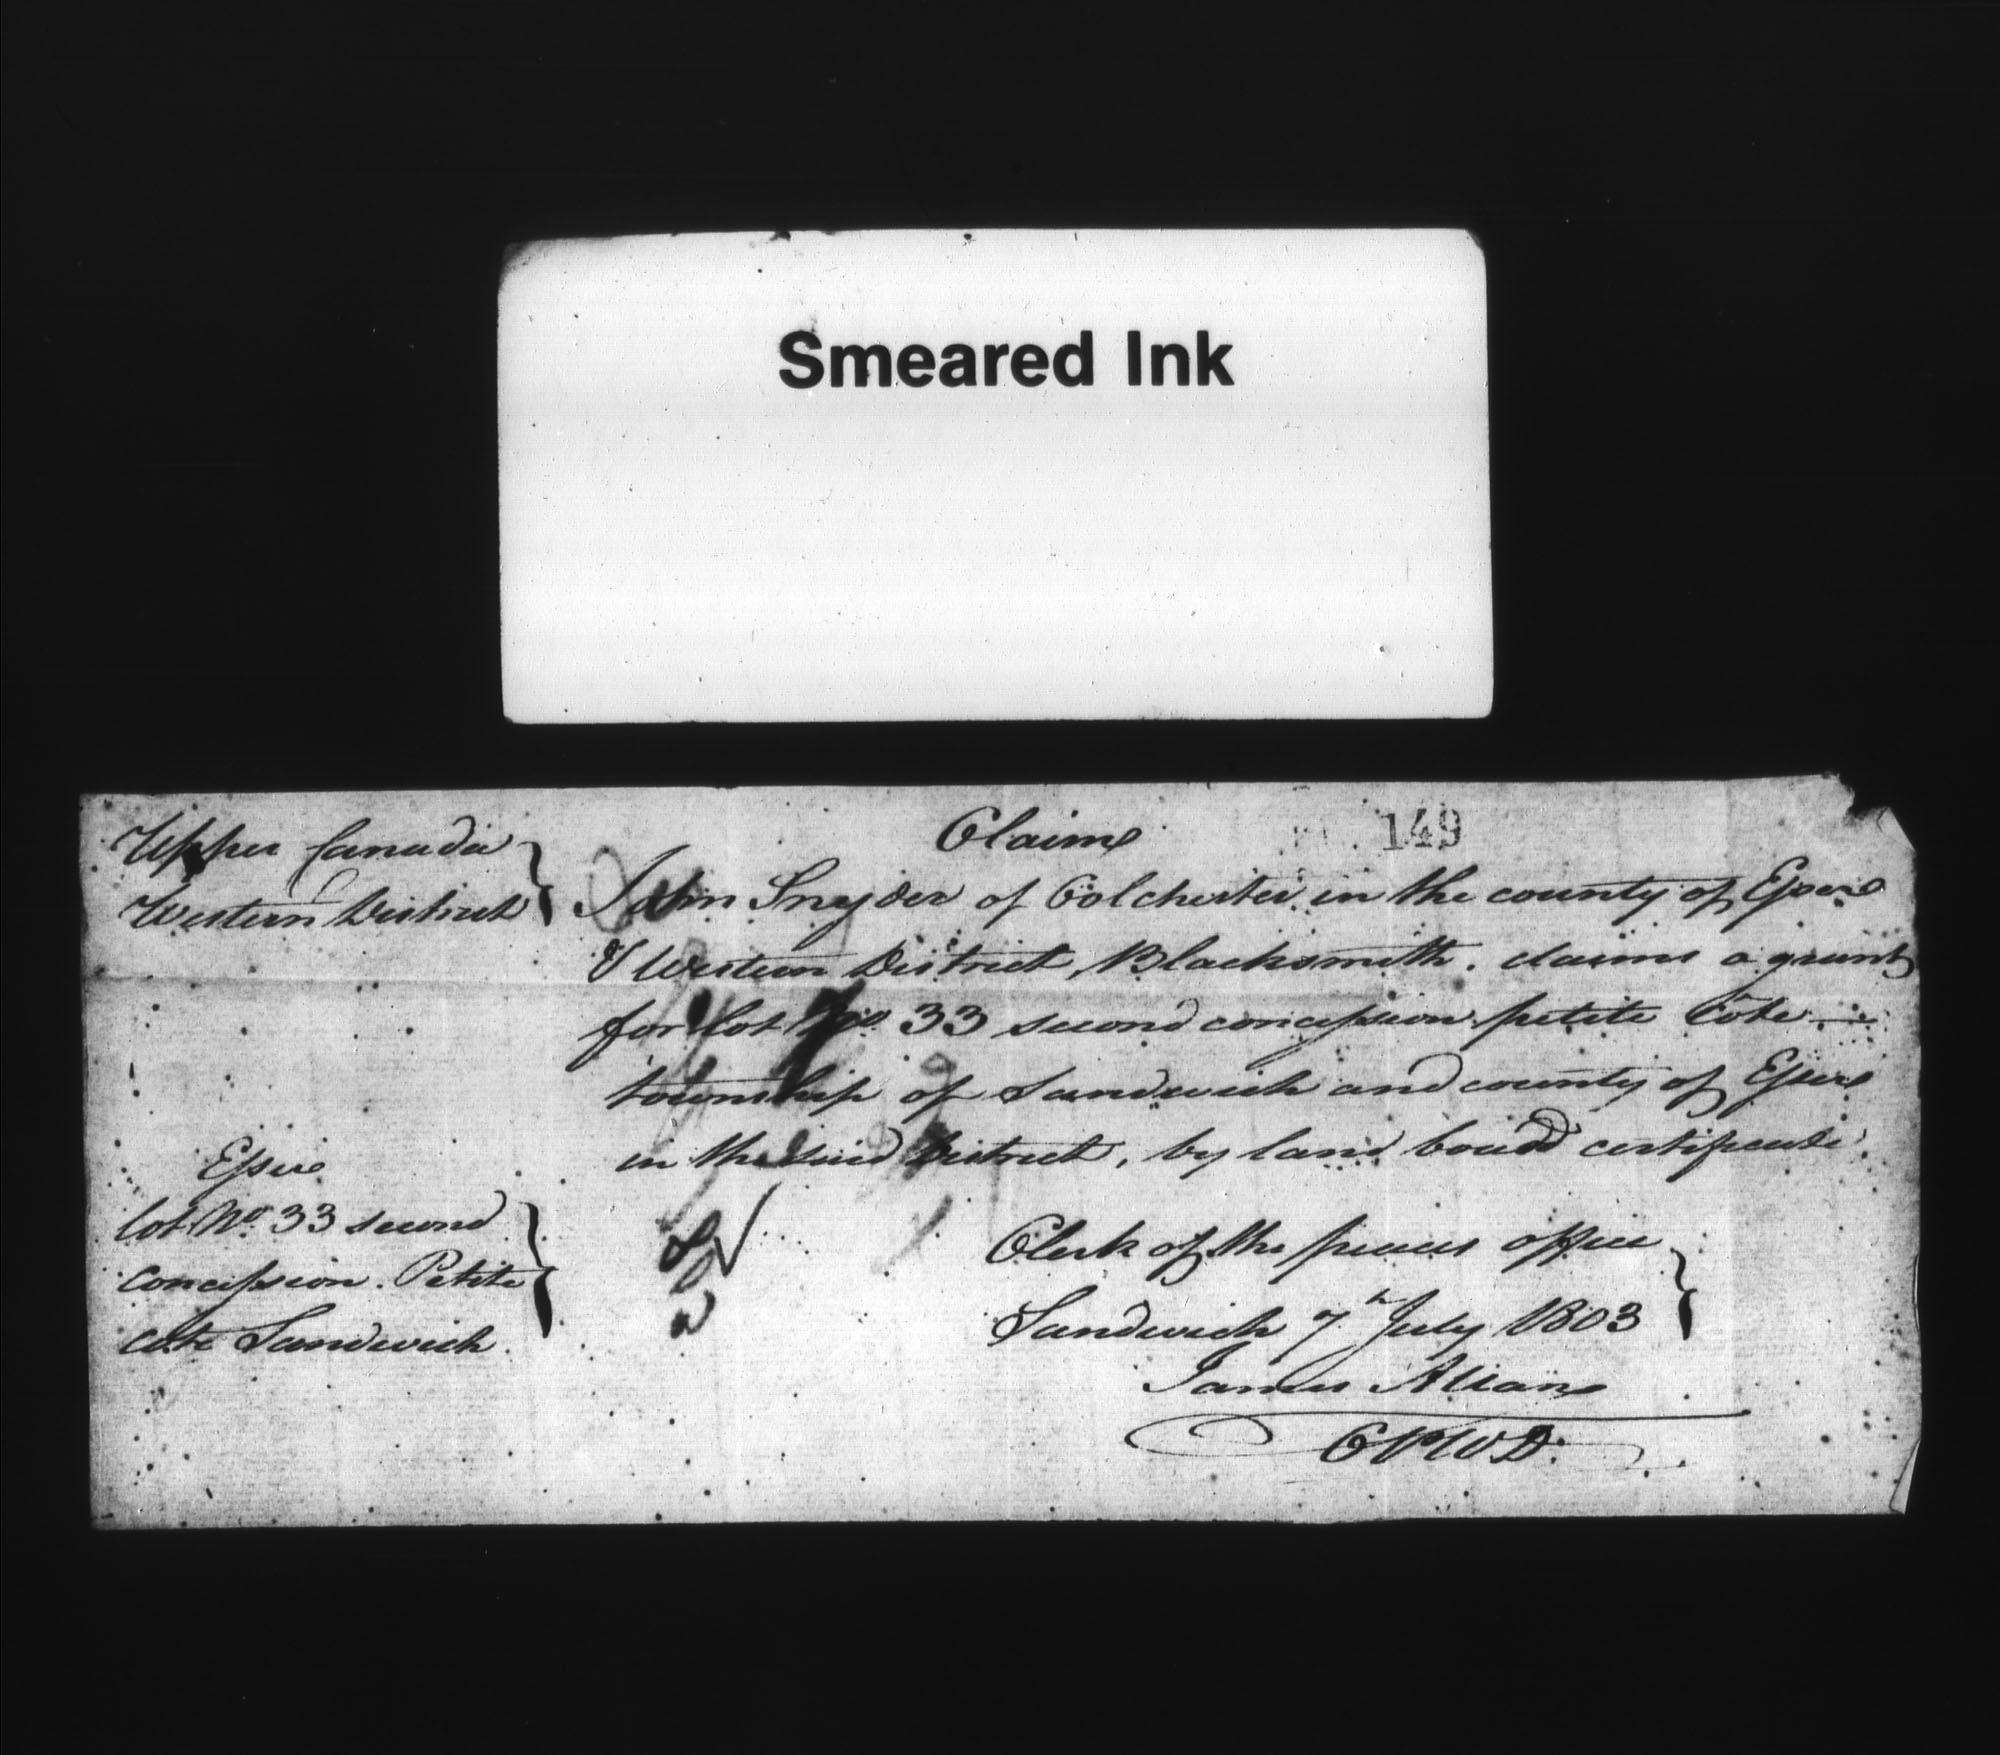 Smeared Ink
Claims
149
Upper Canada
Western District
John Snyder of Colchester in the county of Essex
& Western District, Blacksmith. claims a grant
for lot No 33 second concession petite Côte
township of Sandwich and county of Essex
in the said District, by land board certificate
Essex
lot No 33 second
concession. Petite
cote Sandwich.
Clerk of the peaces office
Sandwich 7th July 1803
James Allans
CPWD.